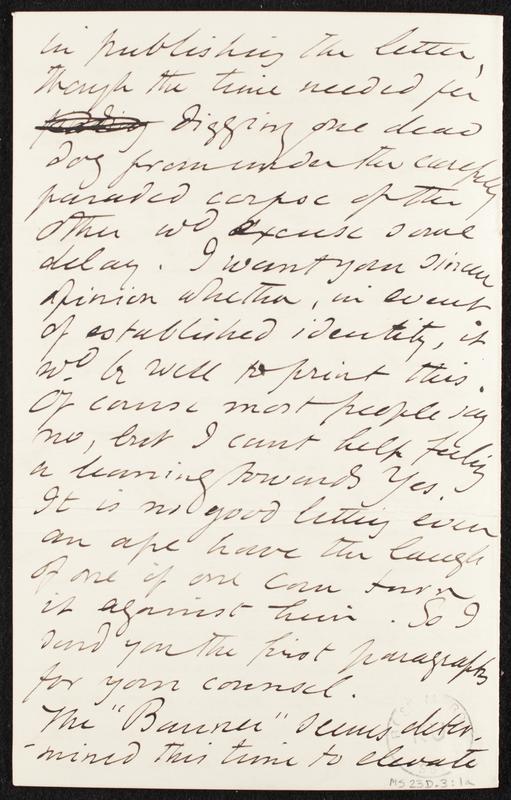 in publishing the letter,
though the time needed for
digging one dead
dog from under the carefully
paraded corpse of the
other wd excuse some
delay. I want your sincere
opinion whether, in event
of established identity, it
wd be well to print this.
Of course most people say
no, but I cant help feeling
a leaning towards Yes.
It is no good letting even
an ape have the laugh
of one if one can turn
it against him. So I
send you the first paragraphs
for your counsel.
The "Banner" seems deter-
-mined this time to elevate
MS 23D.3:1a